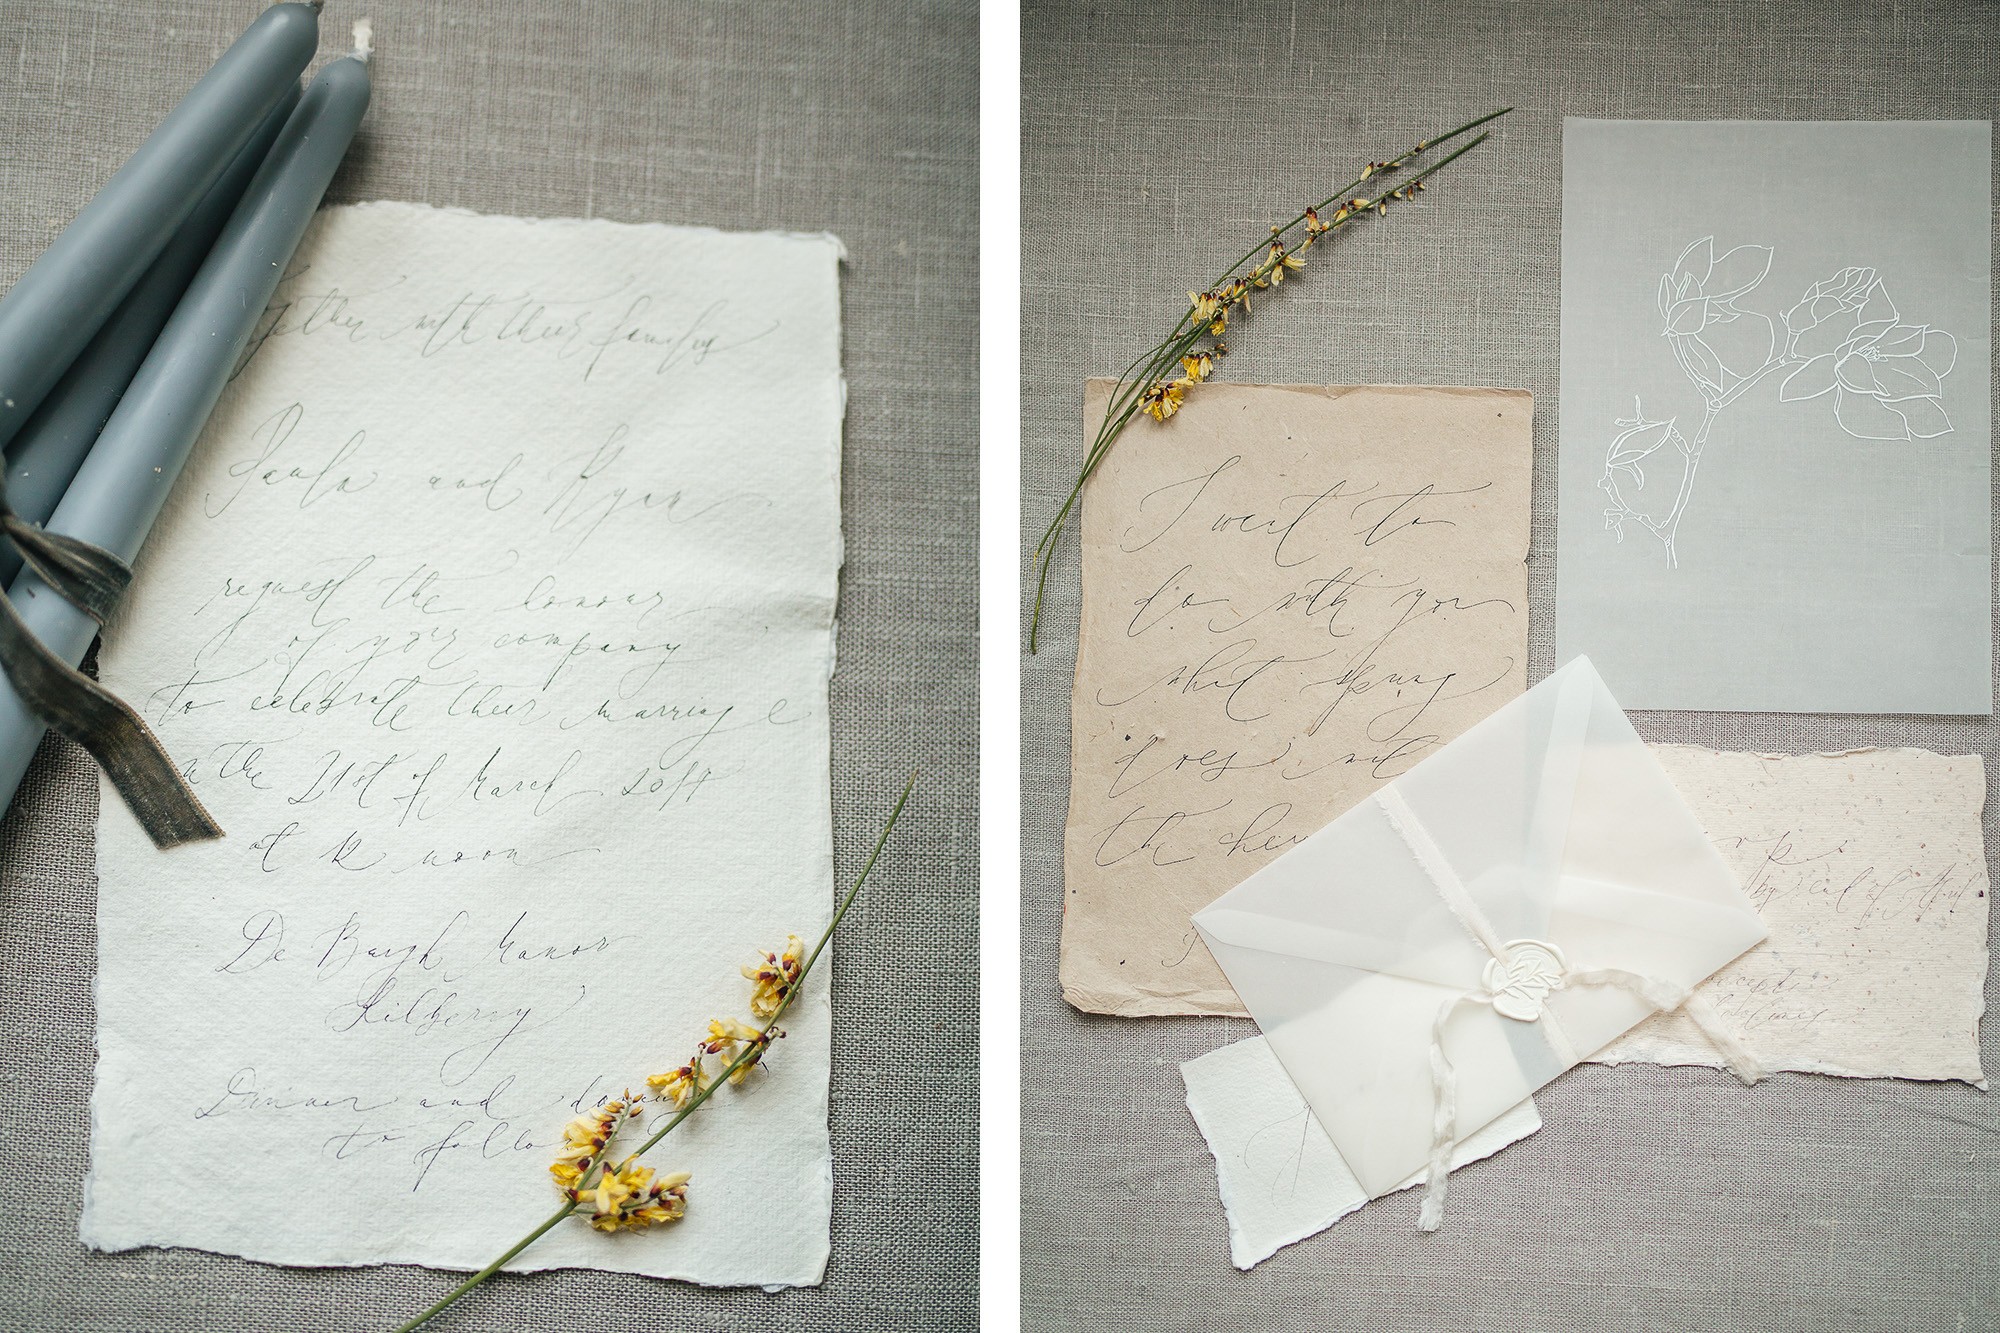 Together with their families
Paula and Ryan
request the honour
of your company
to celebrate their marriage
on the 21st of March
at 12 noon
De Burgh Manor
Kilberry
Dinner and
to follow
I want to
do with you
what spring
does with
the cher
by